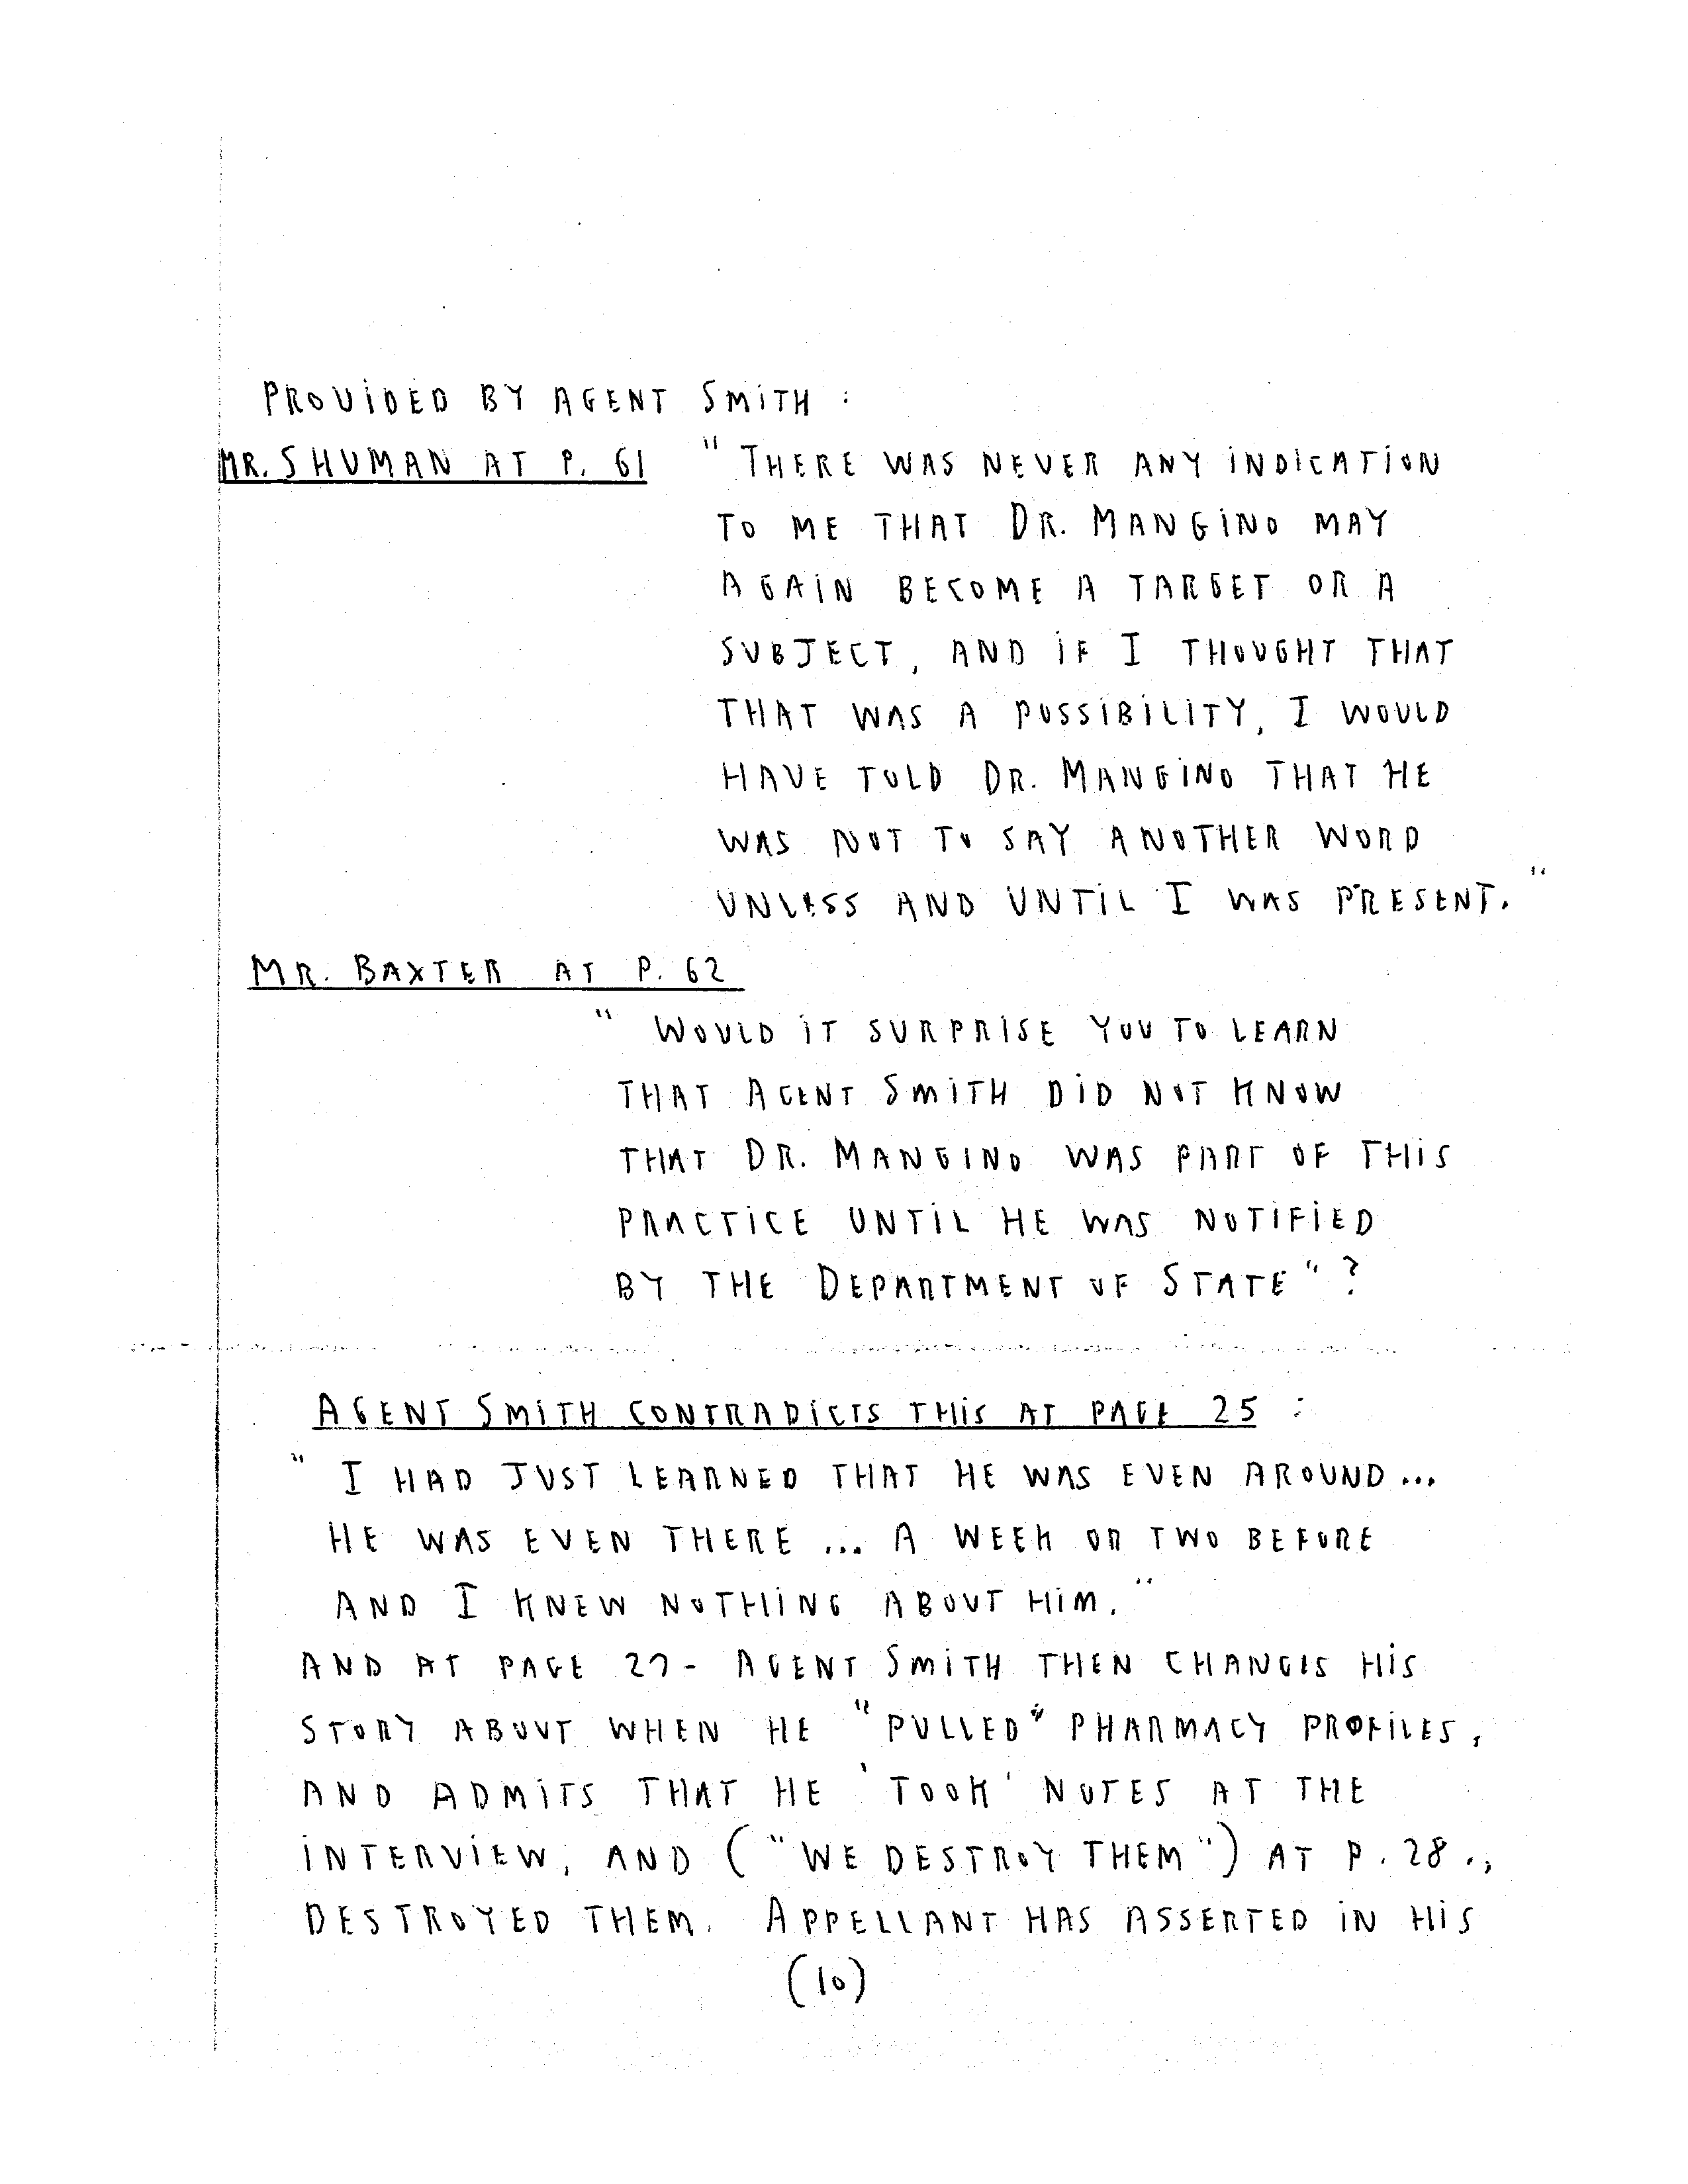 PROVIDED BY AGENT SMITH :
MR. SHUMAN AT P. 61 "THERE WAS NEVER ANY INDICATION
TO ME THAT DR. MANGINO MAY
AGAIN BECOME A TARGET OR A
SUBJECT, AND IF I THOUGHT THAT
THAT WAS A POSSIBILITY, I WOULD
HAVE TOLD DR. MANGINO THAT HE
WAS NOT TO SAY ANOTHER WORD
UNLESS AND UNTIL I WAS PRESENT."
MR. BAXTER AT P. 62
"WOULD IT SURPRISE YOU TO LEARN
THAT AGENT SMITH DID NOT KNOW
THAT DR. MANGINO WAS PART OF THIS
PRACTICE UNTIL HE WAS NOTIFIED
BY THE DEPARTMENT OF STATE"?
AGENT SMITH CONTRADICTS THIS AT PAGE 25 :
"I HAD JUST LEARNED THAT HE WAS EVEN AROUND...
HE WAS EVEN THERE ... A WEEK OR TWO BEFORE
AND I KNEW NOTHING ABOUT HIM."
AND AT PAGE 27 - AGENT SMITH THEN CHANGES HIS
STORY ABOUT WHEN HE "PULLED" PHARMACY PROFILES,
AND ADMITS THAT HE 'TOOK' NOTES AT THE
INTERVIEW, AND ("WE DESTROY THEM") AT P. 28.,
DESTROYED THEM. APPELLANT HAS ASSERTED IN HIS
(10)